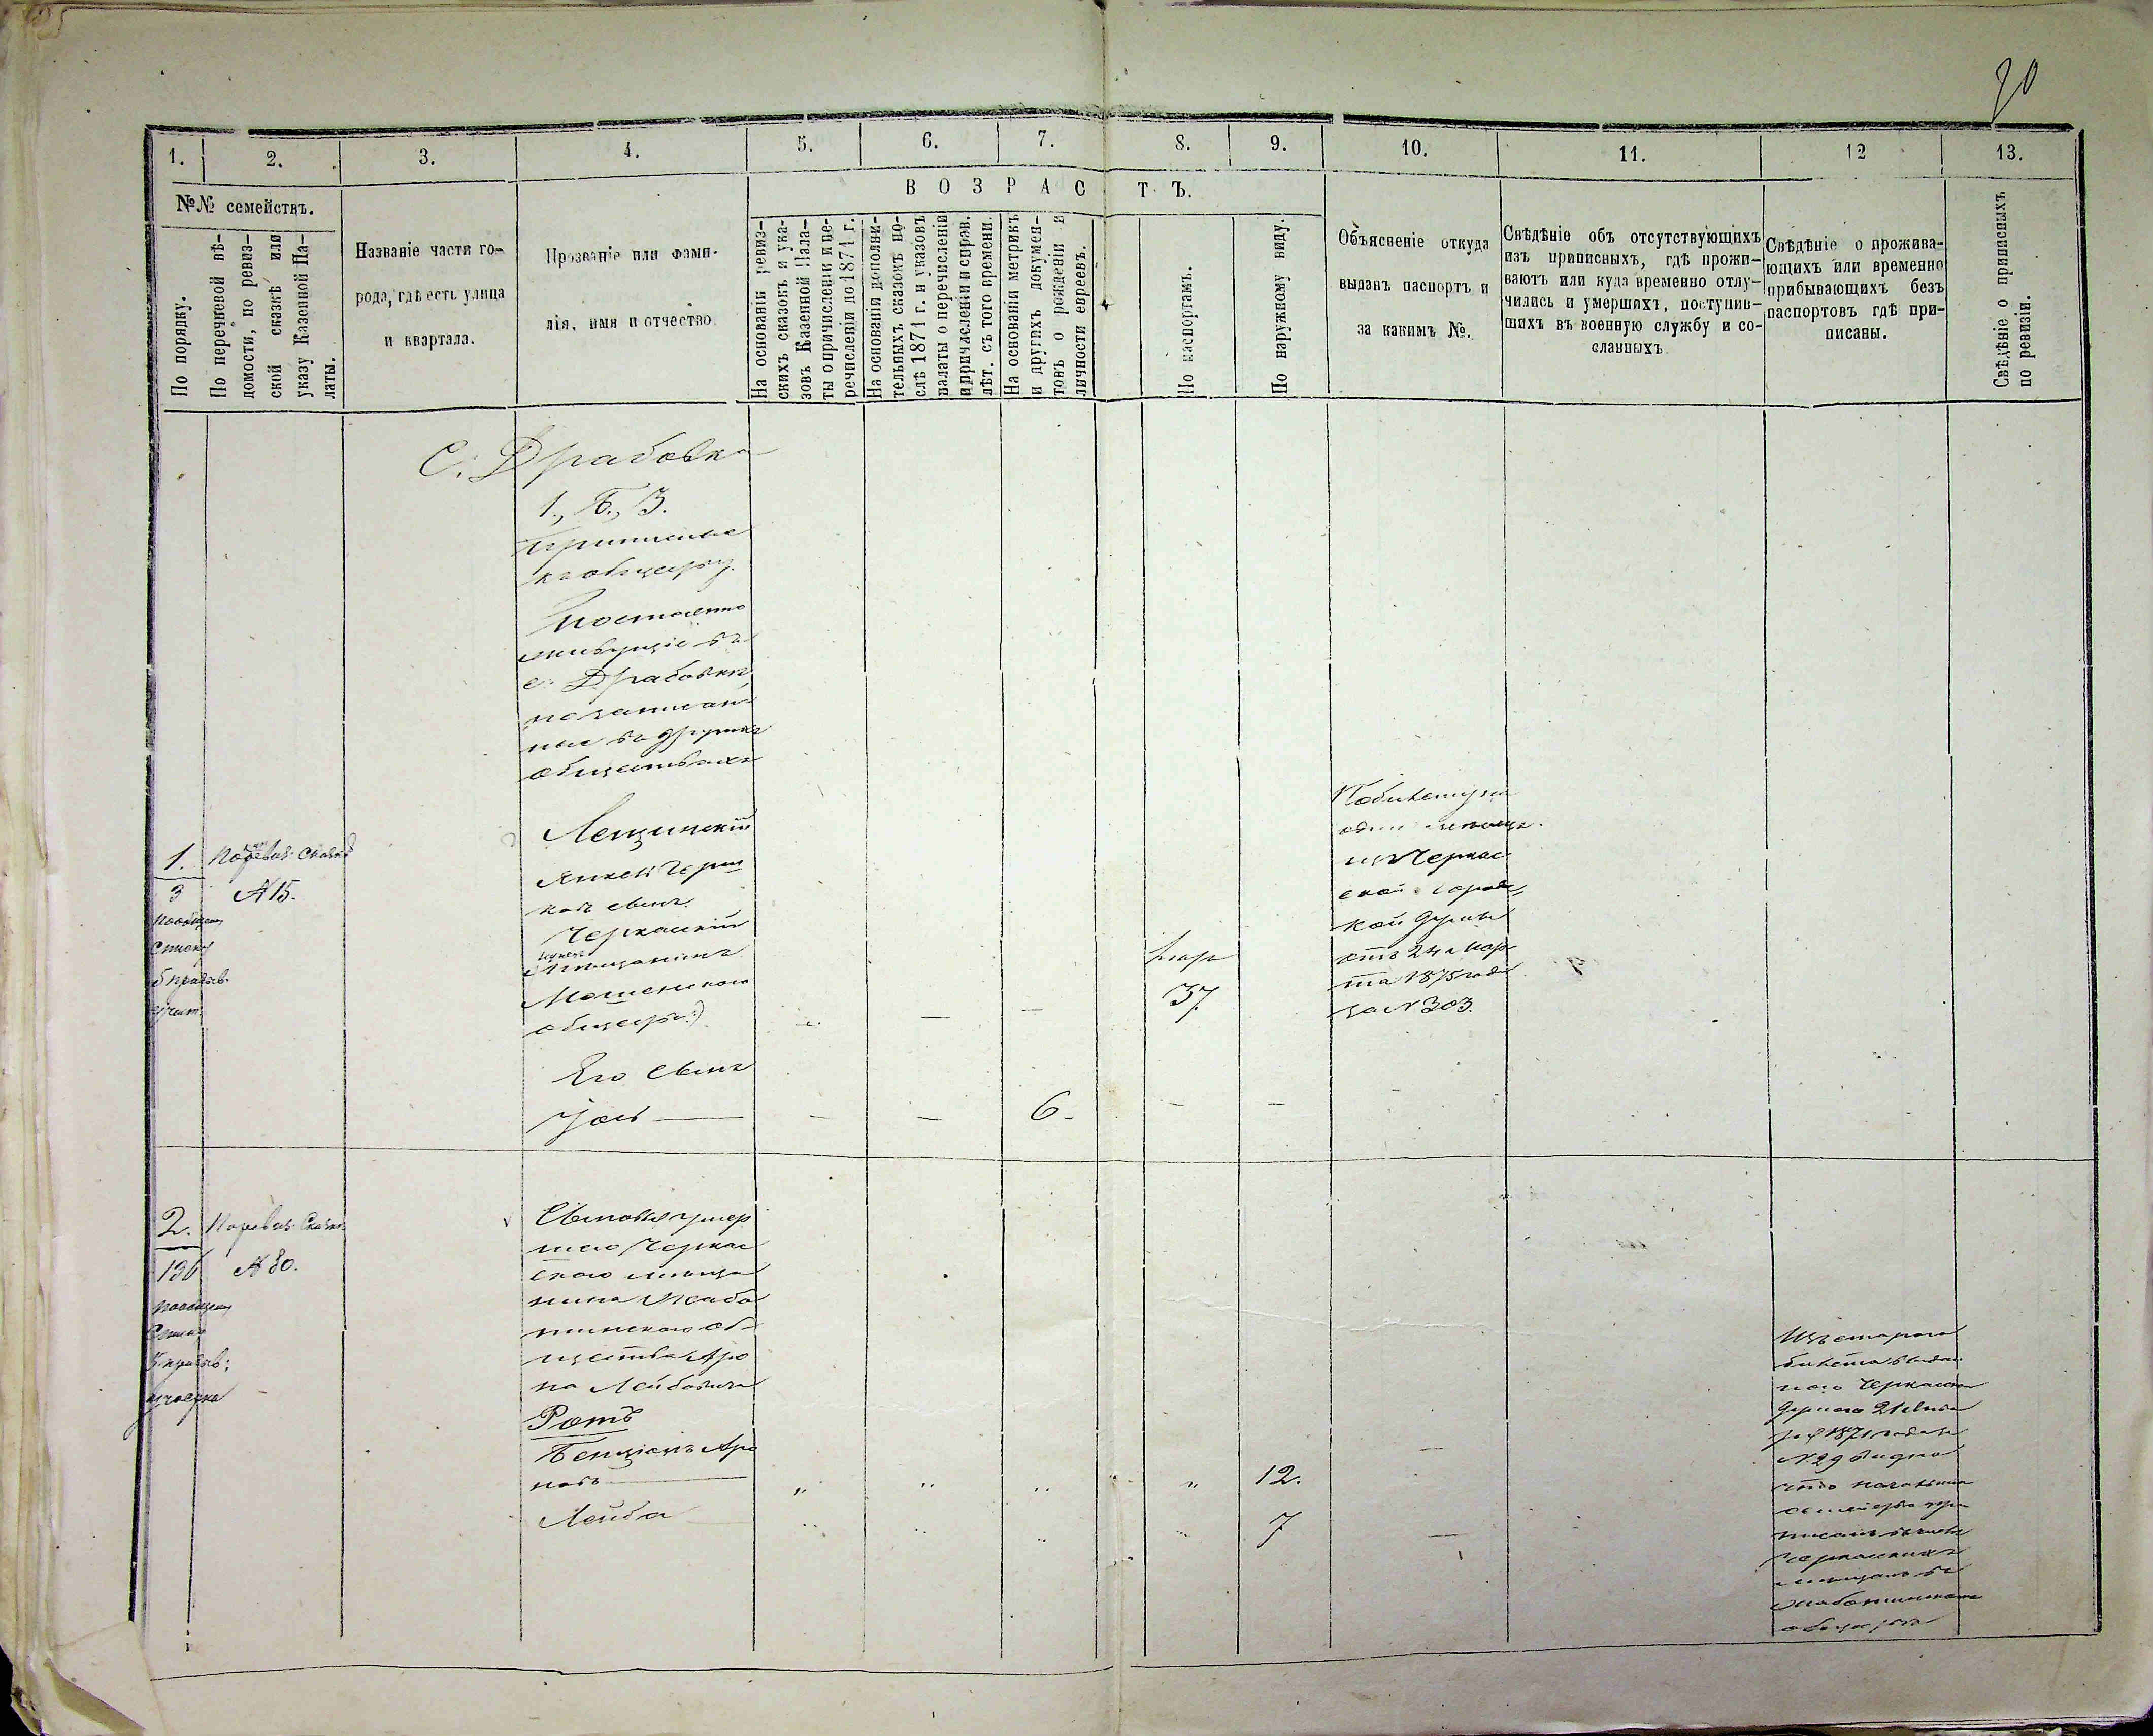 90
1.
2.
3.
4.
5.
6.
7.
8.
9.
10.
11.
12
13.
№№ семействъ.
В О З Р А С Т Ъ.
По порядку.
По перечневой вѣ-
домости, по ревиз-
ской сказкѣ или
указу Казенной Па-
латы.
Названіе части го-
рода, гдѣ есть улица
и квартала.
Прозваніе или фами-
лія, имя и отчество.
На основаніи ревиз-
скихъ сказокъ и ука-
зовъ Казенной Пала-
ты о причисленіи и пе-
речисленіи до 1871 г.
На основаніи дополни-
тельныхъ сказокъ по-
слѣ 1871 г. и указовъ
палаты о перечисленіи
и причисленіи и справ.
лѣт. съ того времени.
На основаніи метрикъ
и другихъ докумен-
товъ о рожденіи и
личности евреевъ.
По паспортамъ.
По наружному виду.
Объясненіе откуда
выданъ паспортъ и
за какимъ №.
Свѣдѣніе объ отсутствующихъ
изъ приписныхъ, гдѣ прожи-
ваютъ или куда временно отлу-
чились и умершихъ, поступив-
шихъ въ военную службу и со-
сланныхъ.
Свѣдѣніе о прожива-
ющихъ или временно
прибывающихъ безъ
паспортовъ гдѣ при-
писаны.
Свѣдѣніе о приписныхъ
по ревизіи.
С. Драбовка
1., Б., З.
Приписные
къ общеру.
Постоенно
живущіе въ
с. Драбовкѣ,
но записан
ные въ другихъ
обществахъ
1.
3
Порев. Сказкѣ
№ 15.
Лещинскій
Янкель Герш
ковъ сынъ
Черкаскій
мещанинъ
Мошенского
общерс.)
37
По билету вы
изъ Черкас
ской Городс
кой Думы
отъ 24 мар
та 1875 года
за № 303.
Его сынъ
Іось — — — 6 - — —
2.
136
Поревиз. Сказкѣ
№ 80.
Сыновья умер
шего Черкас
скаго мѣща
нина Жабо
тинскаго об
щества Аро
на Лейбовича
Ротъ
Бенціонъ Аро
новъ „ „ „ „ 12. —
Лейба „ „ „ „ 7 —
Изъ стараго
билета выдан
наго Черкасскою
Думою 21
1871 года за
№ 29 видно
что
писано въ числѣ
Черкасскихъ
мѣщанъ въ
Жаботинскомъ